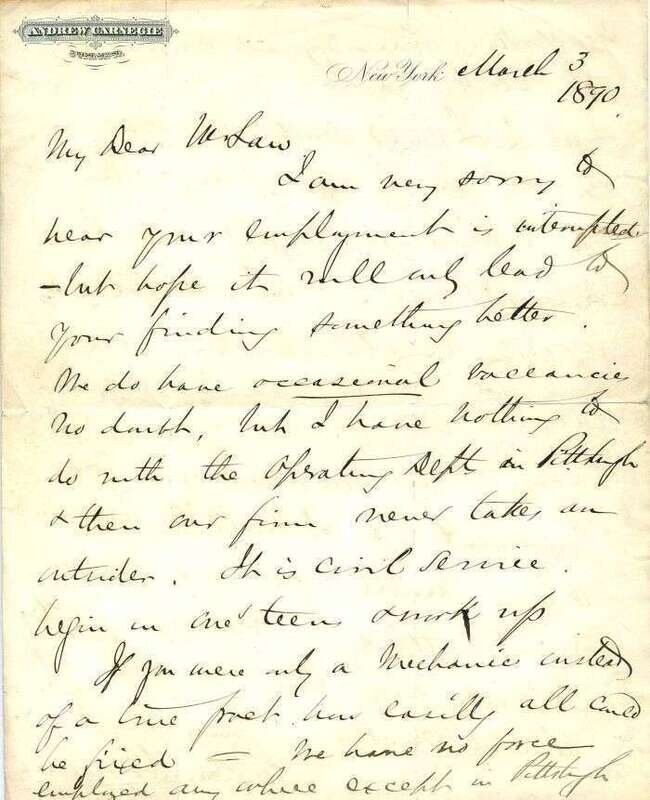 ANDREW CARNEGIE
New York March 3
1890.
My Dear Mr Law
I am very sorry to
hear your employment is interrupted
- but hope it will only lead to
your finding something better.
We do have occasional vaccancies
no doubt, but I have nothing to
do with the Operating Dept in Pittsburgh
& then our firm never takes an
outsider. It is civil service.
begin in one's teens & work up
If you were only a Mechanic instead
of a true poet how easily all could
be fixed = We have no force
employed any where except in Pittsburgh